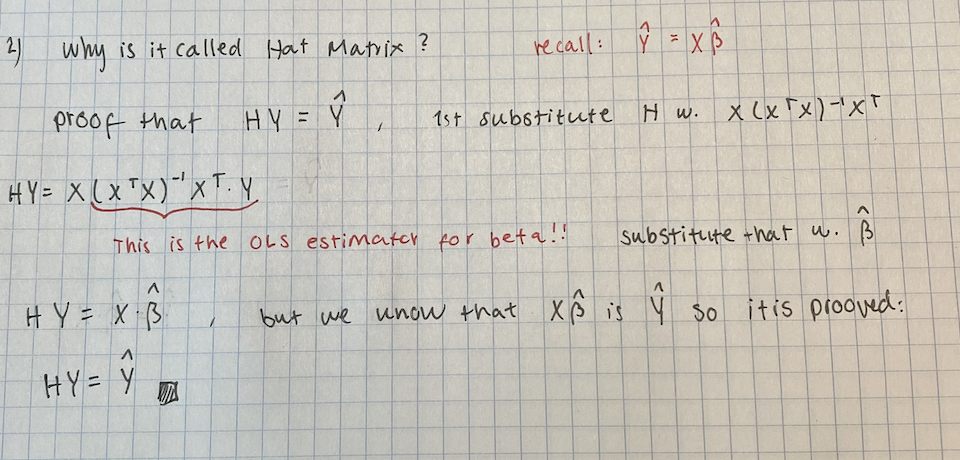 2) Why is it called Hat Matrix ? recall: Ŷ = Xβ̂
proof that HY = Ŷ , 1st substitute H w. X(XᵀX)⁻¹Xᵀ
HY = X(XᵀX)⁻¹Xᵀ · Y
This is the OLS estimator for beta!! substitute that w. β̂
HY = X · β̂ , but we know that Xβ̂ is Ŷ so it is prooved:
HY = Ŷ